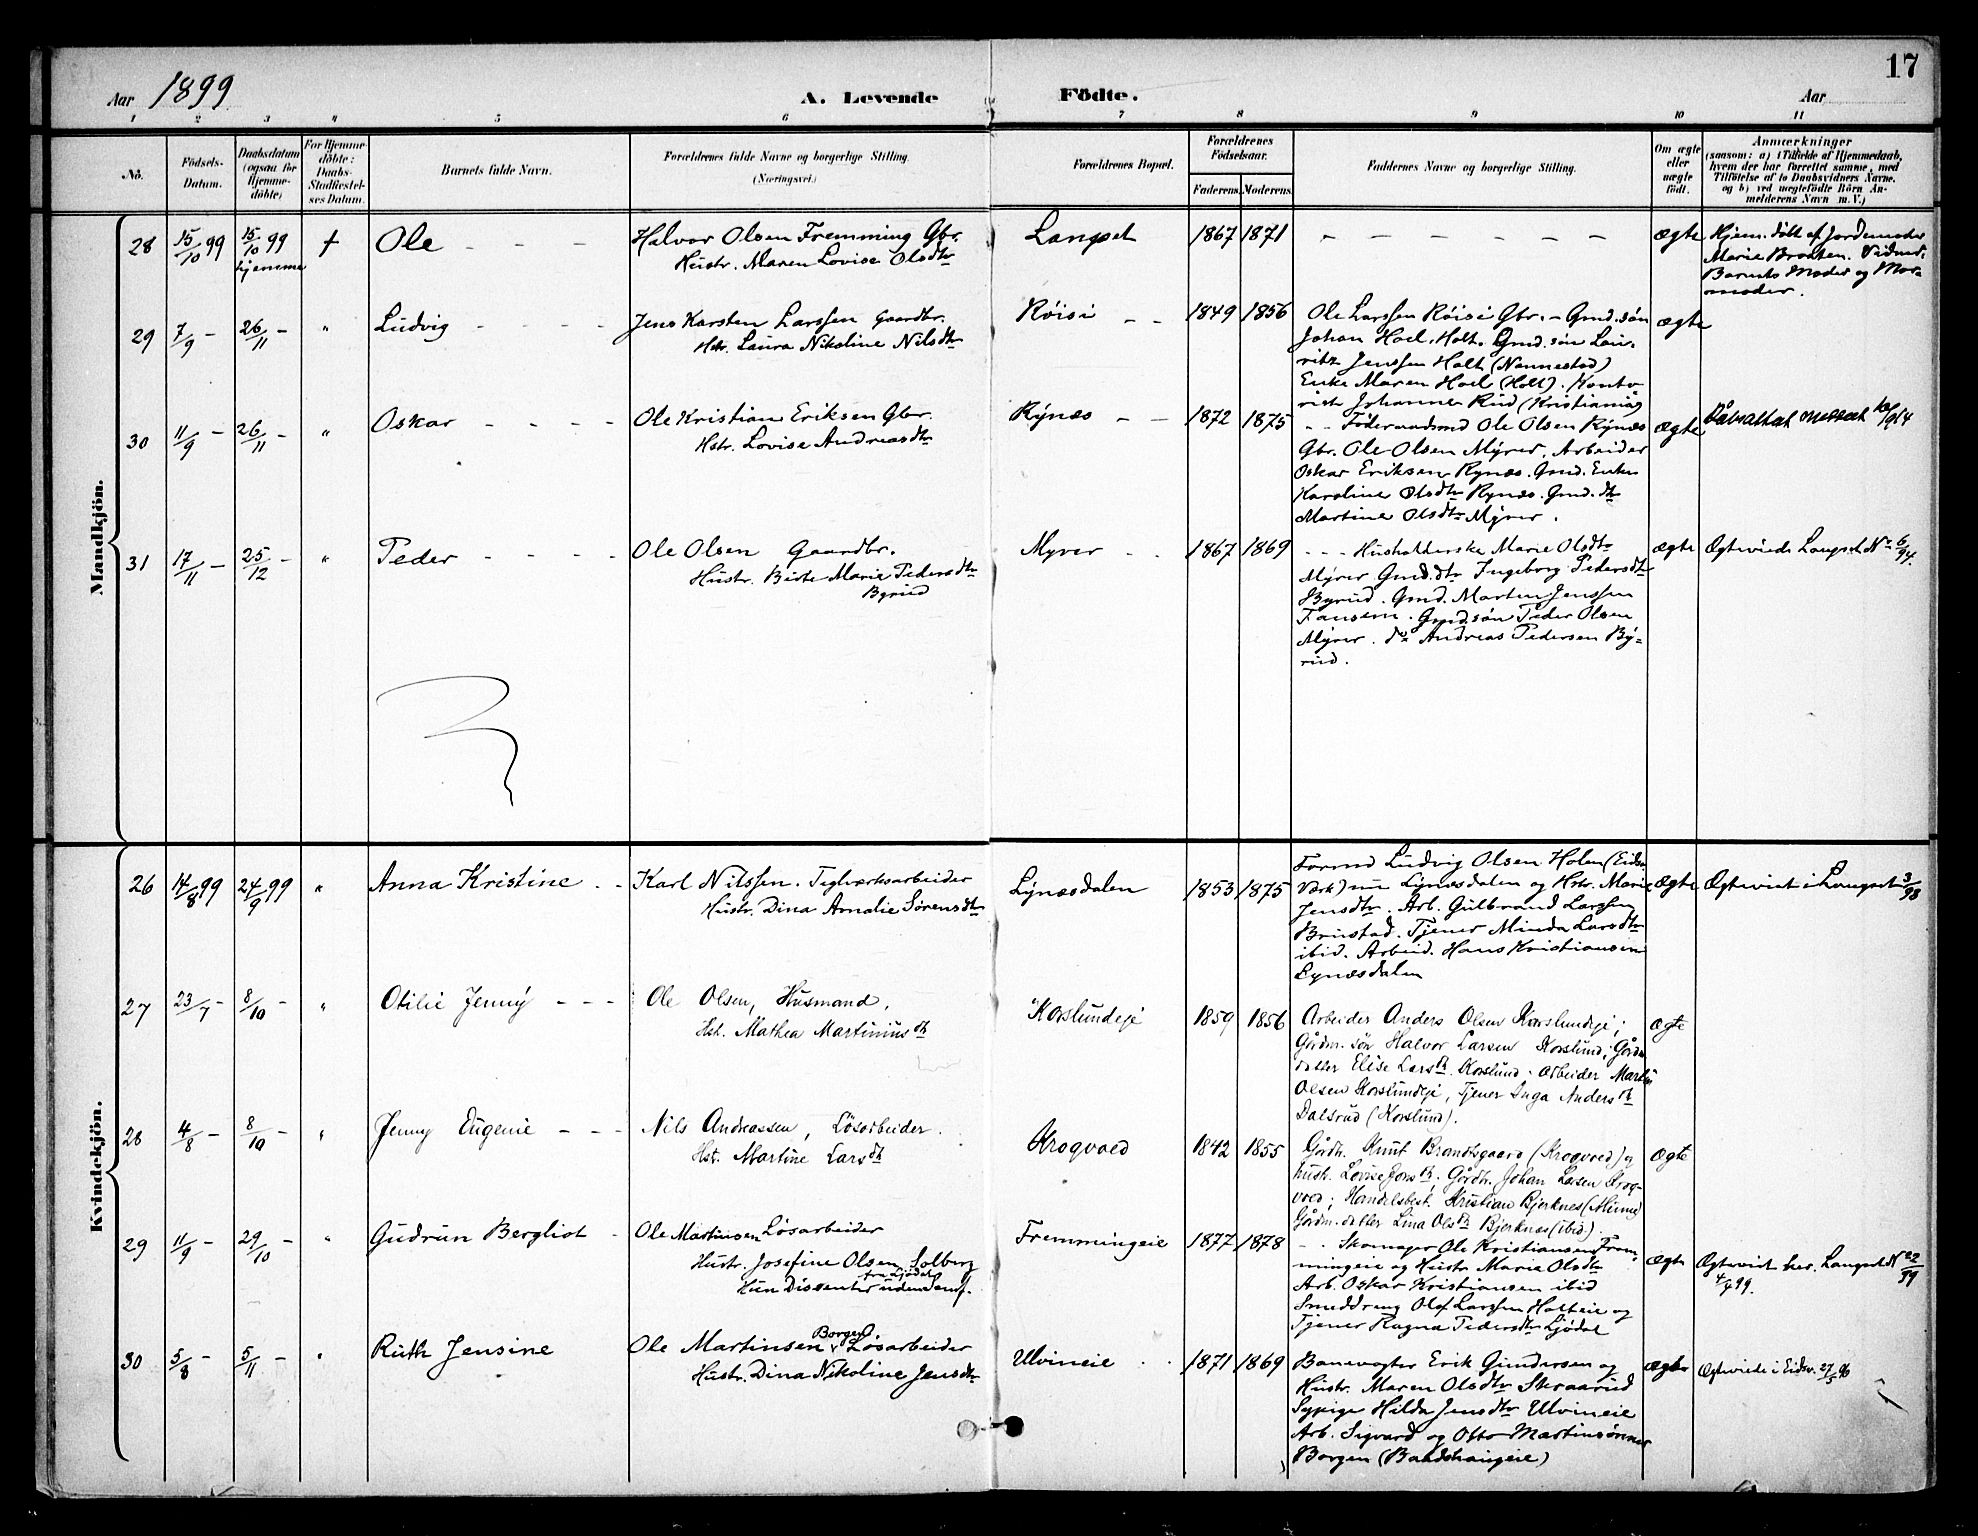 17
Aar 1899
A. Levende Födte.
Aar
1 2 3 4 5 6 7 8 9 10 11
No.
Födsels-Datum.
Daabsdatum (ogsaa for Hjemme-döbte)
For Hjemme-döbte: Daabs-Stadfæstel-ses Datum.
Barnets fulde Navn.
Forældrenes fulde Navne og borgerlige Stilling. (Næringsvei.)
Forældrenes Bopæl.
Forældrenes Födselsaar.
Faderens. Moderens.
Faddernes Navne og borgerlige Stilling.
Om ægte eller uægte födt.
Anmærkninger
(saasom: a) i Tilfælde af Hjemmedaab,
hvem der har forrettet samme, med
Tilföielse af to Daabsvidners Navne.
og b) ved uægtefödte Börn An-
melderens Navn m. V.)
Mandkjön.
28 15/10 99 15/10 99 hjemme † Ole - - -
Halvor Olsen Fremming Gbr.
Hustr. Maren Lovise Olsdtr
Langset 1867 1871 - - - - - - ægte
Hjem. döbt af Jordemoder
Marie Braaten. Vidner.
Barnets Moder og Mor-
moder.
29 7/9 - 26/11 - " Ludvig - - - -
Jens Karsten Larssen Gaardbr.
Hstr. Laura Nikoline Nilsdtr
Röisi - - 1849 1856
Ole Larssen Röisi Gbr. - Gmd. sön
Johan Hoel, Holt. Gmd. sön Lau-
ritz Jenssen Holt (Nannestad)
Enke Maren Hoel (Holt). Konto
rist Johanne Rud (Kristiania)
ægte
30 11/9 - 26/11 - " Oskar - - - -
Ole Kristian Eriksen Gbr.
Hstr. Lovise Andreasdtr
Rÿnæs - - 1872 1875
- - Föderaadsmd Ole Olsen Rÿnæs
Gbr. Ole Olsen Mÿrer, Arbeider
Oskar Eriksen Rynæs. Gmd. Enke
Karoline Olsdtr Rynæs. Gmd. dtr
Martine Olsdtr Mÿrer.
ægte
31 17/11 - 25/12 - " Peder - - - -
Ole Olsen Gaardbr.
Hustr. Birte Marie Pedersdtr
Byrud
Myrer - - 1867 1869
- - - Husholderske Marie Olsdtr
Mÿrer Gmd. dtr Ingeborg Pedersdtr
Byrud. Gmd. Marten Jenssen
Fansem. Gmd. sön Peder Olsen
Mÿrer. do Andreas Pedersen Bÿ-
rud.
ægte
Egteviede Langset No 6/94.
Kvindekjön.
26 14/8 99 24/9 99 " Anna Kristine - -
Karl Nilssen. Teglværksarbeider
Hustr. Dina Amalie Sörensdtr
Lÿnæsdalen 1853 1875
Formd Ludvig Olsen Holm (Eidsv.
Værk) nu Lÿnæsdalen og Hstr. Marie
Jensdtr. Arb. Gulbrand Larssen
Brustad. Tjener Minda Larsdtr
ibid. Arbeid. Hans Kristiansen
Lynæsdalen
ægte
Egteviet i Langset 3/98
27 23/7 - 8/10 - " Otilie Jennÿ - - -
Ole Olsen, Husmand,
Hst. Mathea Martiniusdtr
Korslundeje 1859 1856
Arbeider Anders Olsen Korslundeje;
Gårdm. sön Halvor Larsen Korslund; Gårdm.
datter Elise Larsdtr. Korslund. Arbeider Martin
Olsen Korslundeje, Tjener Inga Andersdtr
Dalsrud (Korslund).
ægte
28 4/8 - 8/10 - " Jenny Eugenie - - -
Nils Andreassen, Lösarbeider.
Hst. Martine Larsdtr
Krogvoed 1842 1855
Gårdbr. Knut Brandsgaard (Krogvoed) og
hustr. Lovise Jonsdtr; Gårdbr. Johan Larsen Krog-
voed; Handelsbest. Kristian Bjerknes (Minne)
Gårdm. datter Lina Olsdtr Bjerknes (ibid).
ægte
29 11/9 - 29/10 - " Gudrun Bergliot -
Ole Martinsen Lösarbeider
Hustr. Josefine Olsen Solberg
fra Ljödal
Hun Dissenter udmeldt
Fremmingeie 1877 1878
- - Skomager Ole Kristiansen Frem-
mingeie og Hustr. Maria Olsdtr
Arb. Oskar Kristiansen ibid
Smeddreng Olaf Larssen Holteie og
Tjener Ragna Pedersdtr Ljödal
ægte
Egteviet her. Langset No 22/99
4/4 99.
30 5/8 - 5/11 - " Ruth Jensine
Ole Martinsen Borgen, Lösarbeider
Hustr. Dina Nikoline Jensdtr
Ulvineie - - 1871 1869
Banevogter Erik Gundersen og
Hustr. Maren Olsdtr Skraarud
Sypige Hilda Jensdtr Ulvineie
Arb. Sigvard og Otto Martinsönner
Borgen (Baadshaugeie)
ægte
Egteviede i Eidsv. 27/5 96